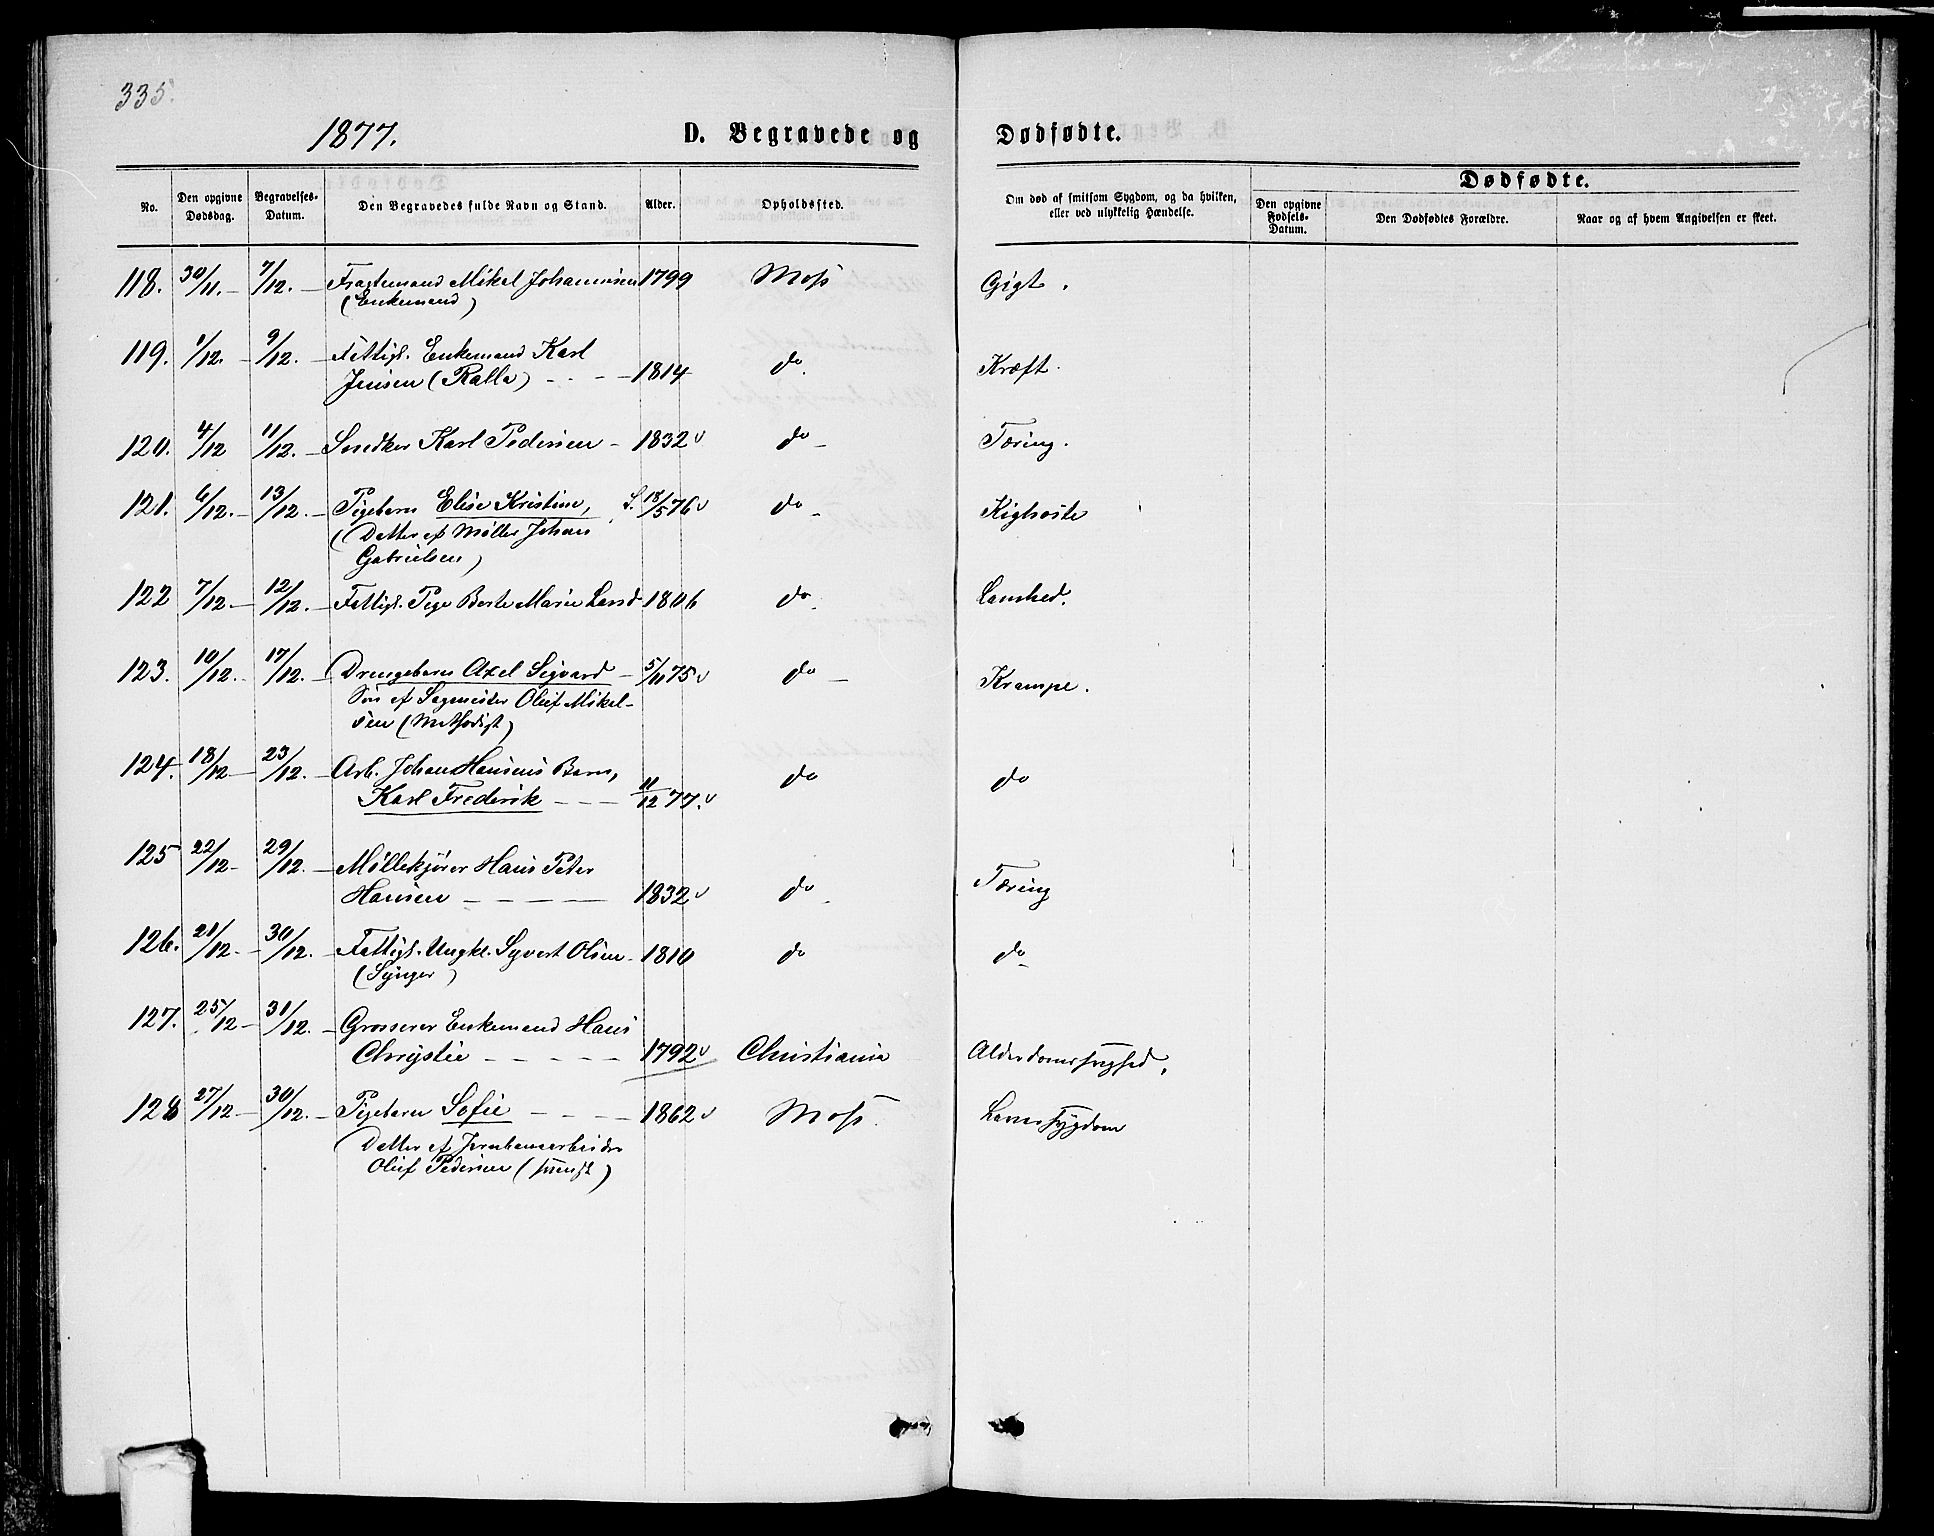 335.
1877.
D. Begravede og Dødfødte.
No. Den opgivne Dødsdag. Begravelses-Datum. Den Begravedes fulde Navn og Stand. Alder. Opholdssted. Om død af smitsom Sygdom, og da hvilken, eller ved ulykkelig Hændelse. Dødfødte. Den opgivne Fødsels-Datum. Den Dødfødtes Forældre. Naar og af hvem Angivelsen er skeet.
118. 30/11. 7/12. Fragtemand Mikel Johannisen 1799 Moss Gigt.
(Enkemand)
119. 1/12. 9/12. Fattigl. Enkemand Karl
Jensen (Ralle) 1814 do. Kræft.
120. 4/12 11/12. Snedker Karl Pedersen 1832 do Tæring.
121. 6/12. 13/12. Pigebarn Elise Kristine, f. 18/5 76 do Kighoste
(Datter af Møller Johan
Gabrielsen)
122 7/12 12/12. Fattigl. Pige Berte Marie Lund 1806 do. Lamhed.
123. 10/12. 17/12. Drengebarn Axel Sigvard 5/11 75 do Krampe.
Søn af Sagmester Oluf Mikel-
sen (Methodist)
124. 18/12 23/12. Arb. Johan Hansens Barn,
Karl Frederik 11/12 77. do do
125 22/12 29/12. Møllekjører Hans Peter
Hansen 1832 do. Tæring
126. 21/12. 30/12. Fattigl. Ungkl. Syvert Olsen 1810 do do
(Synger)
127. 25/12 31/12. Grosserer Enkemand Hans
Chrystie 1792 Christiania Alderdomssvaghed.
128 27/12 30/12. Pigebarn Sofie 1862 Moss. Lamsygdom
Datter af Jernbanearbeider
Oluf Pedersen (svensk)